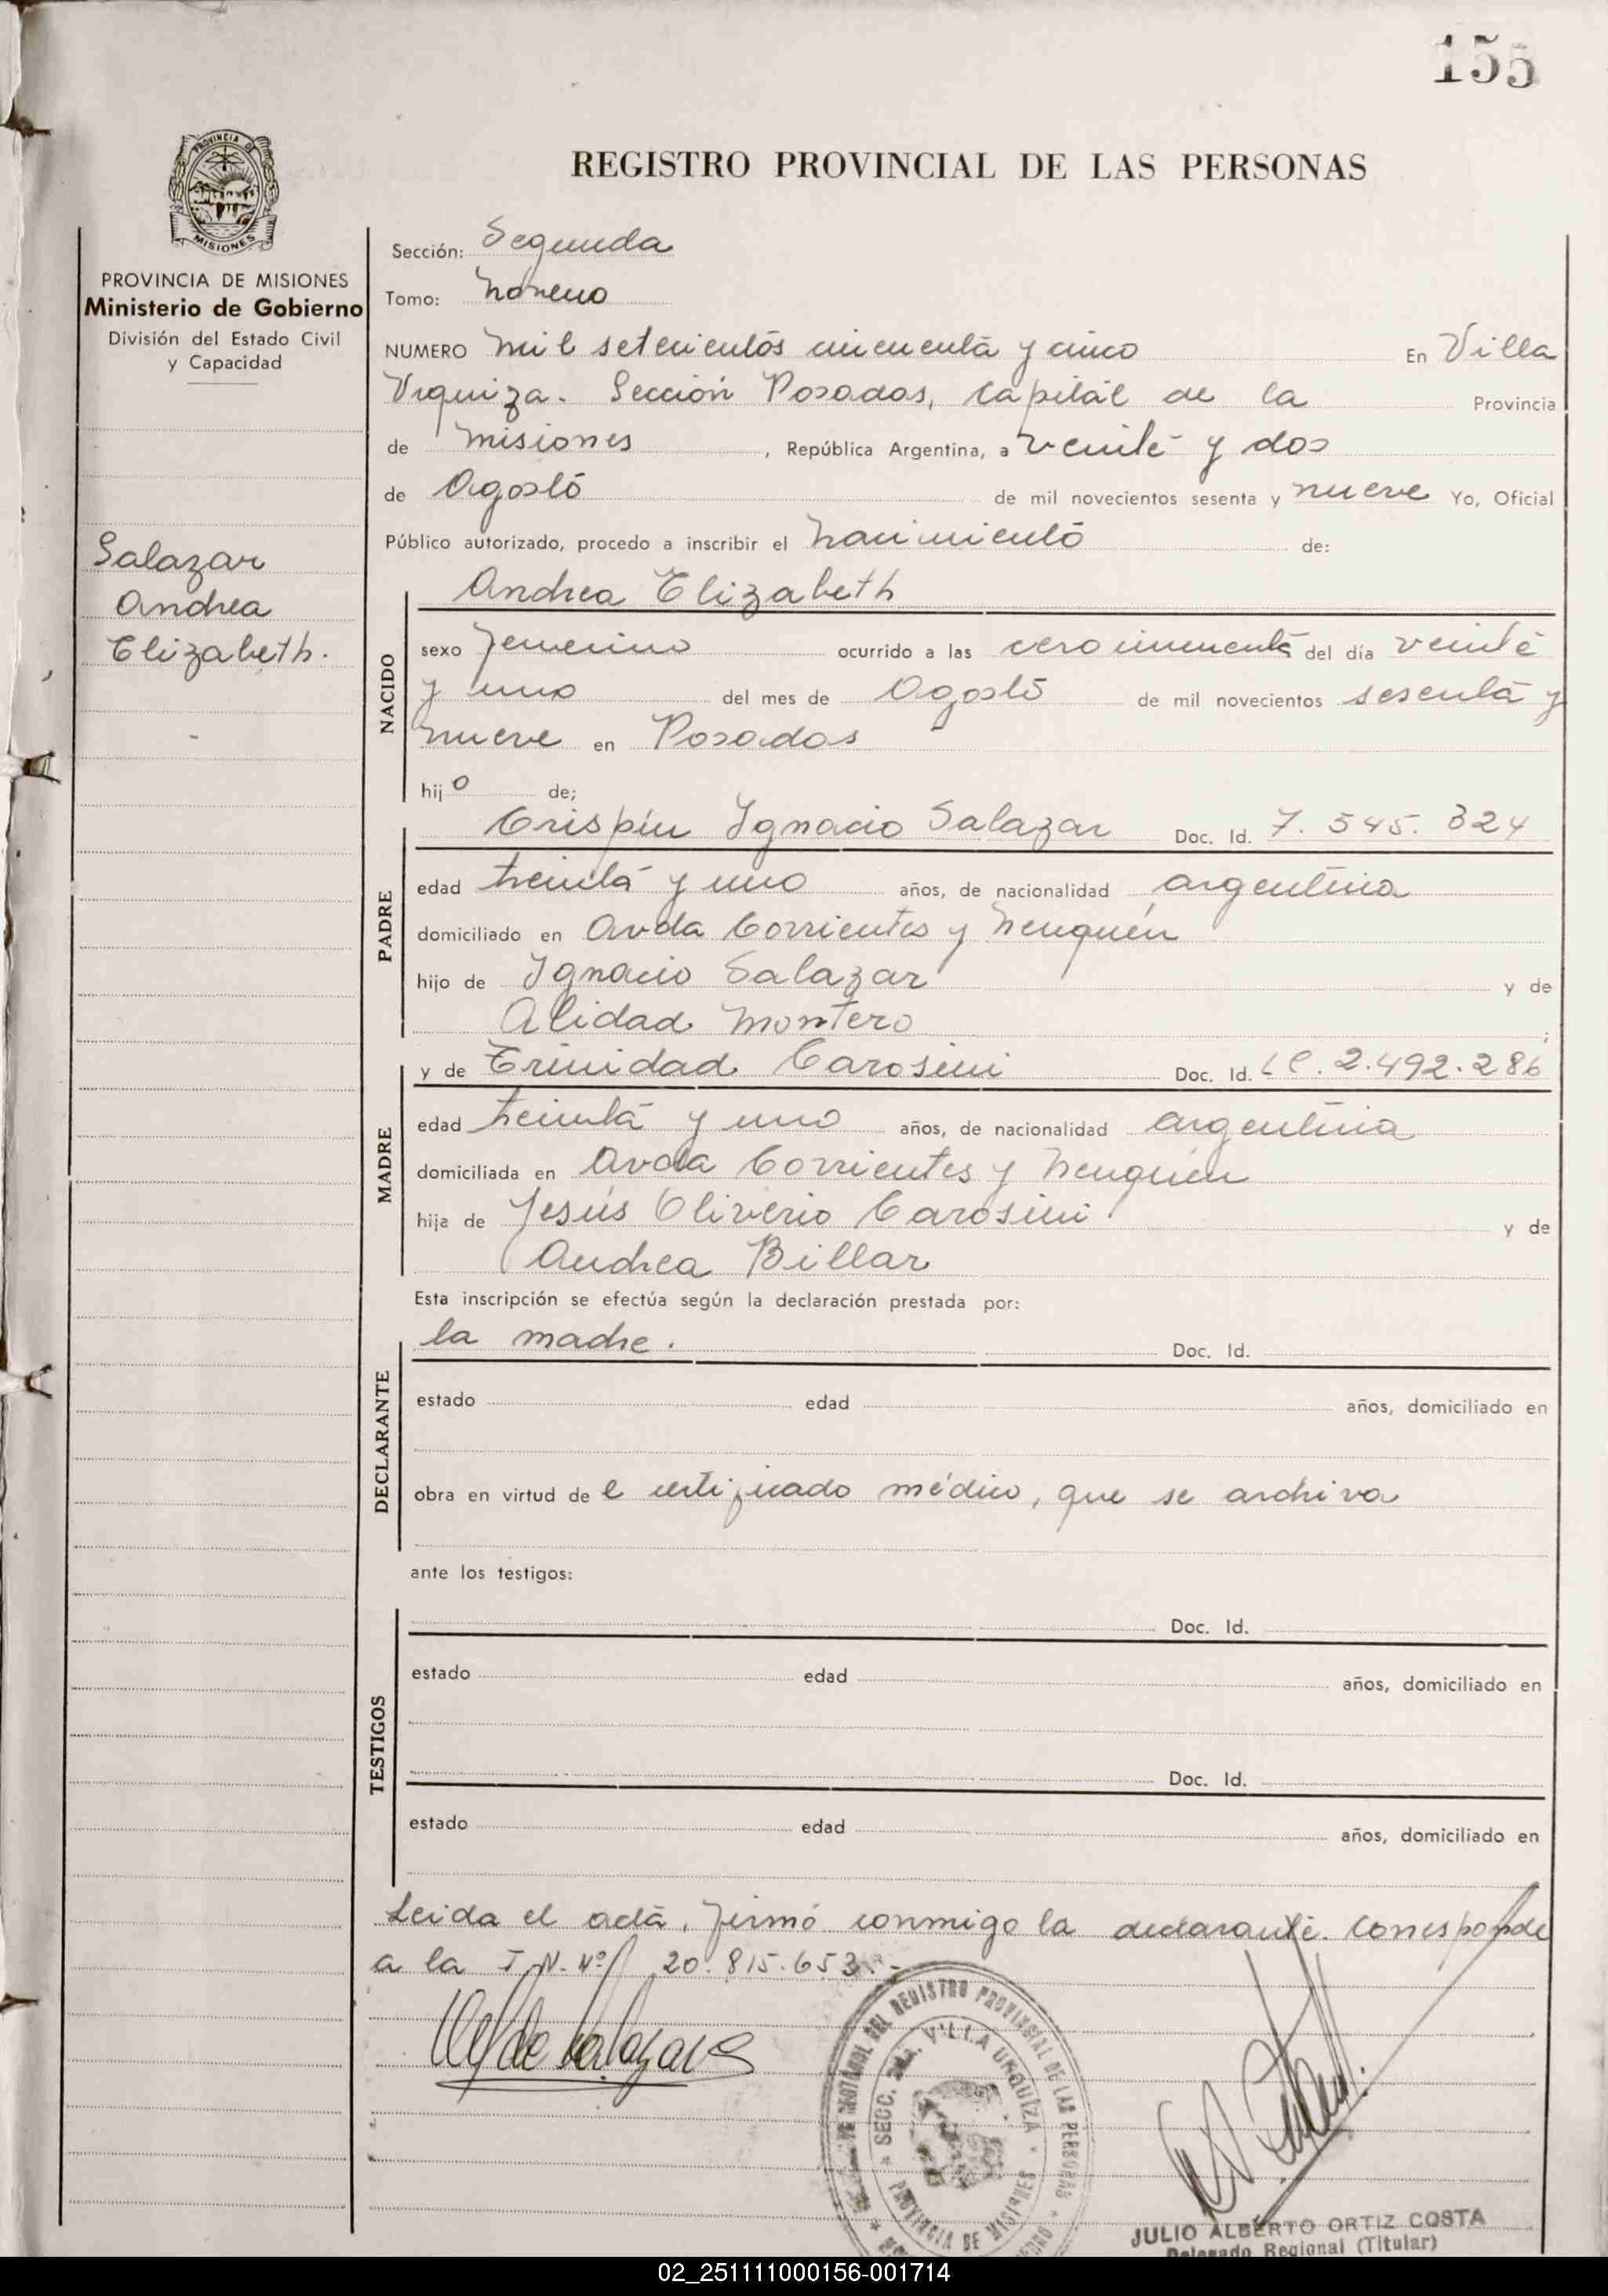 155
PROVINCIA DE MISIONES
REGISTRO PROVINCIAL DE LAS PERSONAS
PROVINCIA DE MISIONES
Ministerio de Gobierno
División del Estado Civil
y Capacidad
Salazar
Andrea
Elizabeth.
Sección: Segunda
Tomo: Noveno
NUMERO Mil setecientos cincuenta y cinco En Villa
Urquiza. Sección Posadas, Capital de la Provincia
de Misiones, República Argentina, a veinte y dos
de Agosto de mil novecientos sesenta y nueve Yo, Oficial
Público autorizado, procedo a inscribir el nacimiento de:
Andrea Elizabeth
NACIDO
sexo femenino ocurrido a las cero cincuenta del día veinte
y uno del mes de Agosto de mil novecientos sesenta y
nueve en Posadas
hijo de;
Crispín Ignacio Salazar Doc. Id. 7.545.324
PADRE
edad treinta y uno años, de nacionalidad argentina
domiciliado en Avda Corrientes y Neuquén
hijo de Ignacio Salazar y de
Alidad Montero ;
y de Trinidad Carosini Doc. Id. LC. 2.492.286
MADRE
edad treinta y uno años, de nacionalidad argentina
domiciliada en Avda Corrientes y Neuquén
hija de Jesús Oliverio Carosini y de
Andrea Billar
Esta inscripción se efectúa según la declaración prestada por:
la madre. Doc. Id.
DECLARANTE
estado edad años, domiciliado en
obra en virtud de l certificado médico, que se archiva
ante los testigos:
Doc. Id.
TESTIGOS
estado edad años, domiciliado en
Doc. Id.
estado edad años, domiciliado en
Leida el acta, firmó conmigo la declarante. Corresponde
a la T.N. Nº 20.815.653.-
de Salazar
DEL REGISTRO PROVINCIAL DE LAS PERSONAS
SECC. VILLA URQUIZA
PROVINCIA DE MISIONES
JULIO ALBERTO ORTIZ COSTA
Delegado Regional (Titular)
02_251111000156-001714